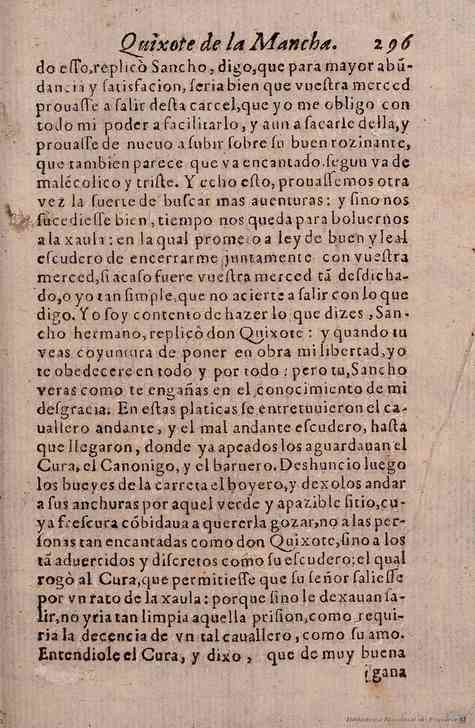 Quixote de la Mancha. 296
do esso, replicò Sancho, digo, que para mayor abũ-
dancia y satisfacion, seria bien que vuestra merced
prouasse a salir desta carcel, que yo me obligo con
todo mi poder a facilitarlo, y aun a sacarle della, y
prouasse de nueuo a subir sobre su buen rozinante,
que tambien parece que va encantado, segun va de
malécolico y triste. Y echo esto, prouassemos otra
vez la suerte de buscar mas auenturas: y sino nos
sucediesse bien, tiempo nos queda para boluernos
a la xaula: en la qual prometo a ley de buen y leal
escudero de encerrarme juntamente con vuestra
merced, si acaso fuere vuestra merced tã desdicha-
do, o yo tan simple, que no acierte a salir con lo que
digo. Yo soy contento de hazer lo que dizes, San-
cho hermano, replicò don Quixote: y quando tu
veas coyuntura de poner en obra mi libertad, yo
te obedecere en todo y por todo: pero tu, Sancho
veras como te engañas en el conocimiento de mi
desgracia. En estas platicas se entretuuieron el ca-
uallero andante, y el mal andante escudero, hasta
que llegaron, donde ya apeados los aguardauan el
Cura, el Canonigo, y el baruero. Deshuncio luego
los bueyes de la carreta el boyero, y dexolos andar
a sus anchuras por aquel verde y apazible sitio, cu-
ya frescura cõbidaua a quererla gozar, no a las per-
sonas tan encantadas como don Quixote, sino a los
tã aduertidos y discretos como su escudero: el qual
rogò al Cura, que permitiesse que su señor saliesse
por vn rato de la xaula: porque sino le dexauan sa-
lir, no yria tan limpia aquella prision, como requi-
ria la decencia de vn tal cauallero, como su amo.
Entendiole el Cura, y dixo, que de muy buena
gana